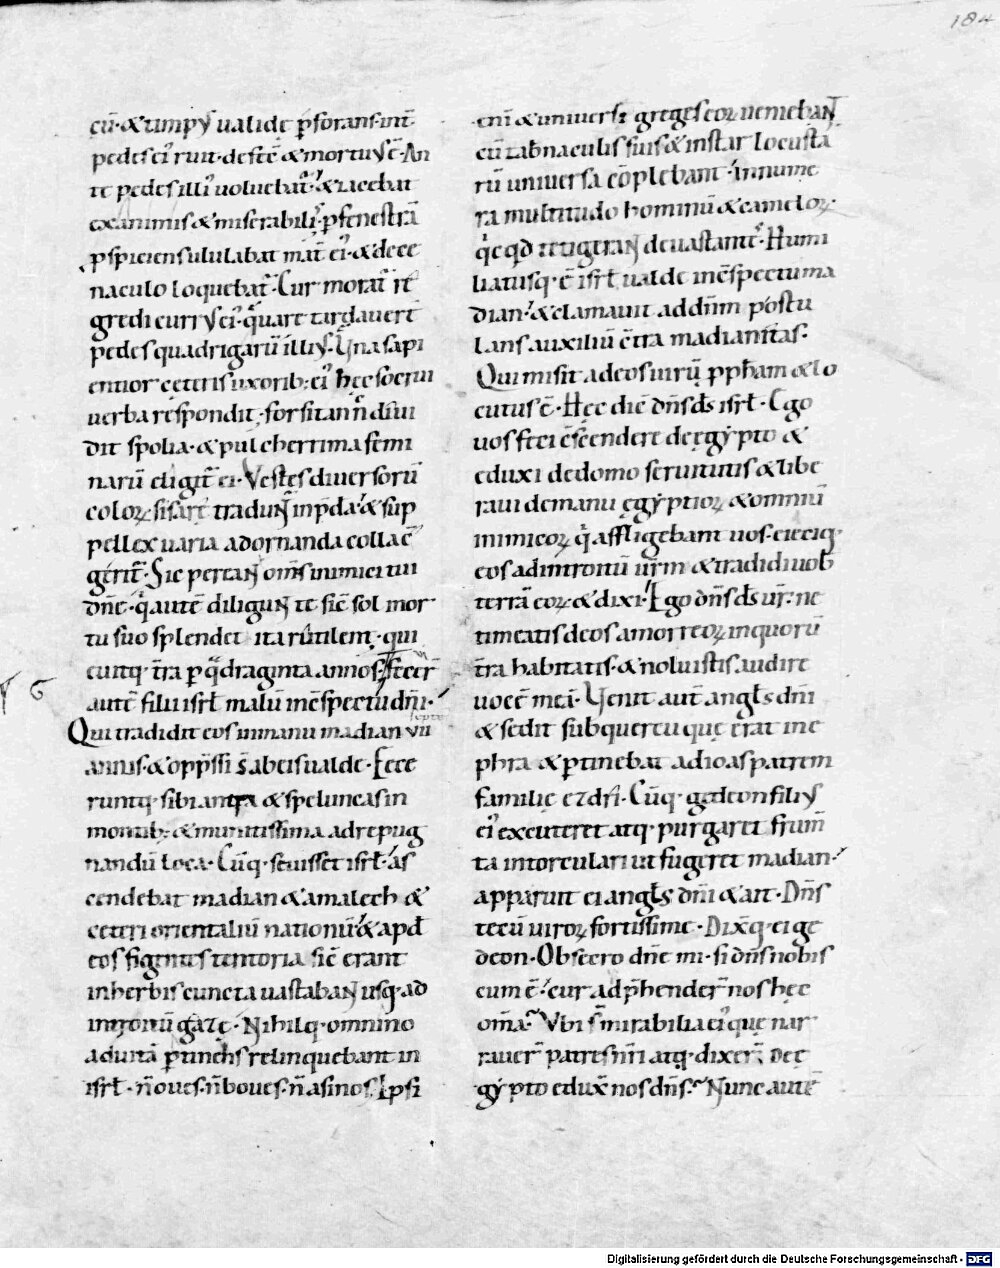 184
cū·&timpuſ ualide ꝑforans·int̄
pedes ei᷒ ruit·defec̄ & mortuuſ ē·An
te pedes illi᷒ uoluebat᷑·& iacebat
exanimis & miserabilis·ꝑ fenestrā
ꝑspiciens ululabat mat̄ ei᷒·& de ce
naculo loquebat᷑·Cur morat᷑ re
gredi curruſ ei᷒·quare tardauer̄t
pedes quadrigarū illiuſ·Una sapi
entior ceteris uxorib; ei᷒ hęc socrui
uerba respondit·forsitan n̄c diui
dit spolia·& pulcherrima femi
narū eligit᷑ ei·Vestes diuersorū
coloꝝ sisare tradunt᷑ in p̄da·& sup
pellex uaria ad ornanda colla c̄
gerit᷑·Sic pereant om̄s inimici tui
dn̄e·q̄ autē diligunt te sic̄ sol in or
tu suo splendet ita rutilent·qui
euitq· t̄ra ꝑ q̄draginta annos·fecer̄
autē filii isrł malū in c̄spectu dn̄i·
Qui tradidit eos in manu madian vii
septē
annis·& opp̄ssi s̄ ab eis ualde·Fece
runtq· sibi antra & speluncas in
montib; & munitissima ad repug
nandū loca·Cūq· seuisset isrł·as
cendebat madian & amalech &
ceteri orientaliū nationū·& apđ
eos figentes tentoria sic̄ erant
in herbis cuncta uastabant usq· ad
introitū gazę·Nihilq· omnino
ad uitā ꝑtinens relinquebant in
isrł·n̄ oues·n̄ boues·n̄ asinos·Ipsi
eni᷒ & uniuersi greges eoꝝ ueniebant
cū tab̄naculis suis & instar locusta
rū uniuersa cōplebant·innume
ra multitudo hominū & cameloꝝ·
q̄cq̄d tetigerant deuastantes·Humi
liatusq· ē isrł ualde in c̄spectu ma
dian·& clamauit ad dn̄m postu
lans auxiliū c̄tra madianitas·
Qui misit ad eos uirū ꝓph̄am & lo
cutus ē·Hęc dic̄ dn̄s ds̄ isrł·Ego
uos feci c̄scendere de ęgypto &
eduxi de domo seruitutis & libe
raui de manu ęgyptioꝝ & omniū
inimicoꝝ q̄ affligebant uos·eieciq·
eos ad introitū ur̄m & tradidi uob̄
terrā eoꝝ & dixi·Ego dn̄s ds̄ ur̄·ne
timeatis deos amorreoꝝ in quorū
t̄ra habitatis·& noluistis audire
uocē meā·Uenit aut̄ angłs dn̄i
& sedit sub quercu que erat in e
phra & ꝑtinebat ad ioas patrem
familię ezdri·Cūq· gedeon filiuſ
ei᷒ excuteret atq· purgaret frum̄
ta in torculari ut fugeret madian·
apparuit ei angłs dn̄i & ait·Dn̄s
tecū uiroꝝ fortissime·Dixitq· ei ge
deon·Obsecro dn̄e mi·si dn̄s nobis
cum ē·cur adp̄hender̄ nos hęc
om̄a·Vbi s̄ mirabilia ei᷒ quę nar
rauer̄ patres nr̄i atq· dixer̄·De ę
gypto edux̄ nos dn̄s·Nunc autē